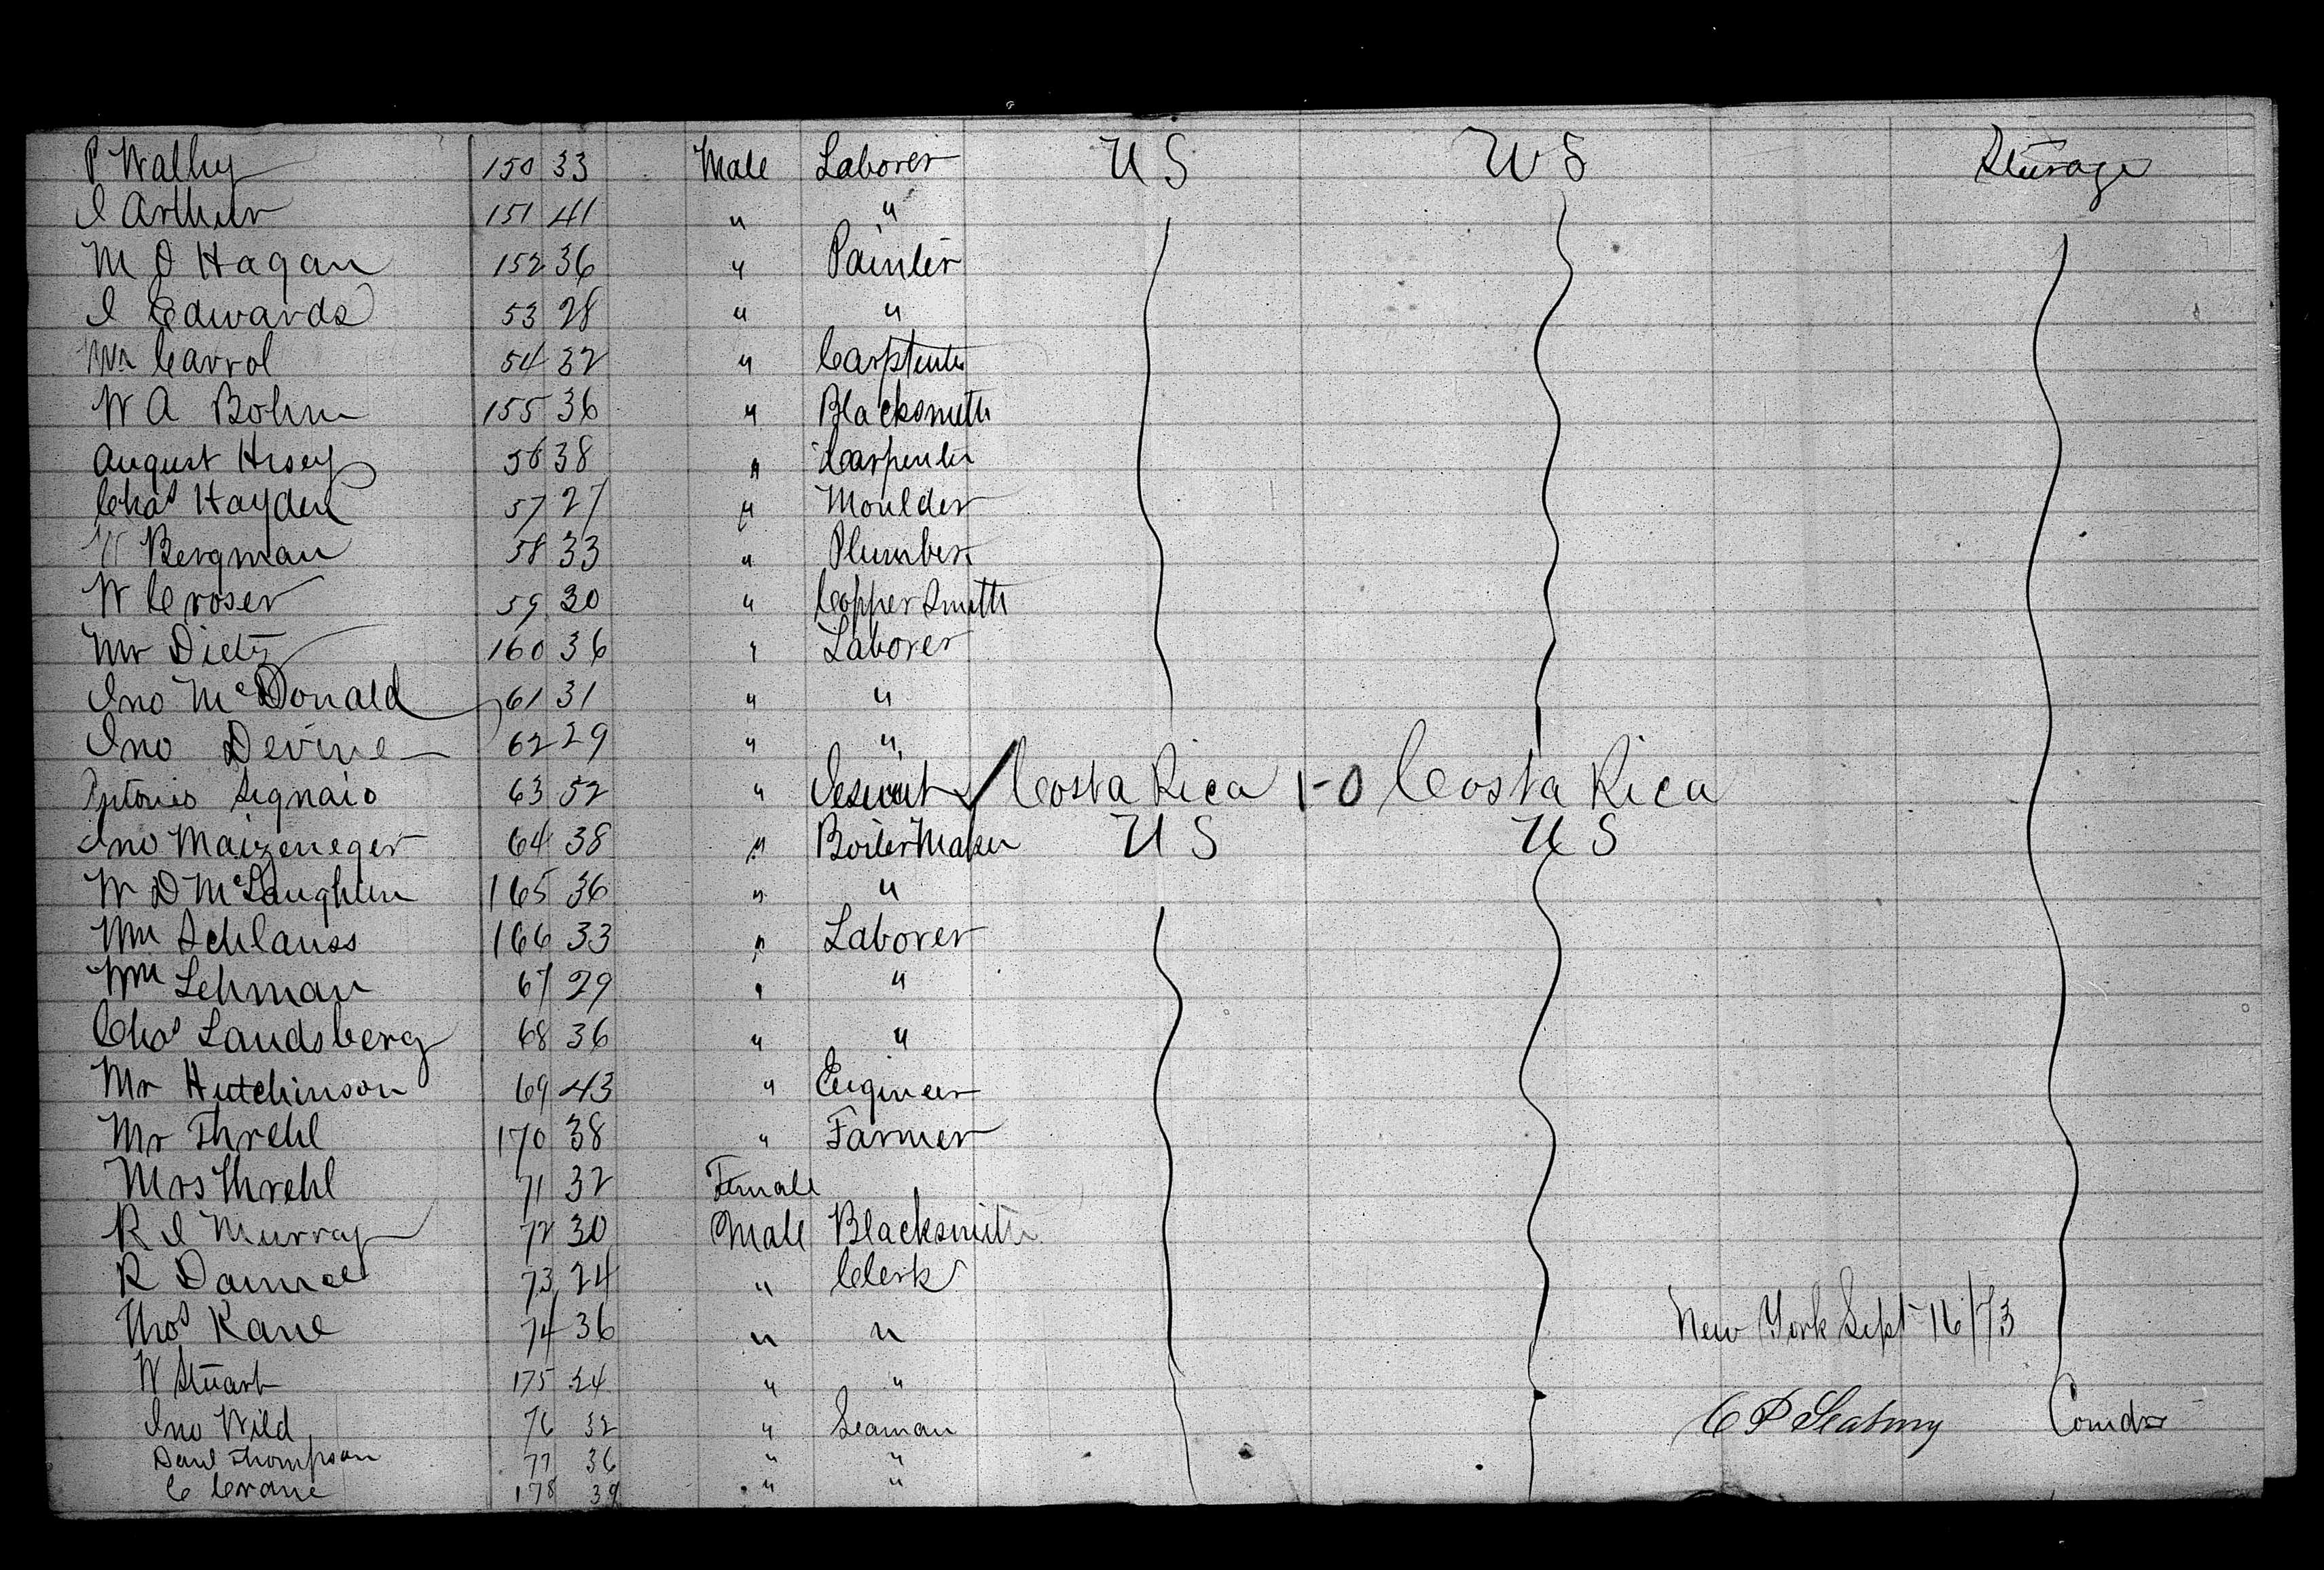 P Walhy 150 33 Male Laborer U S U S Steerage
I Arthur 151 41 " "
M O Hagan 152 36 " Painter
I Edwards 53 28 " "
Wm Carrol 54 32 " Carptenter
W A Bohm 155 36 " Blacksmith
August Hrsey 56 38 " Carpenter
Chas Hayden 57 27 " Moulder
W Bergman 58 33 " Plumber
W Croser 59 30 " Copper Smith
Mr Dietz 160 36 " Laborer
Jno McDonald 61 31 " "
Jno Devine 62 29 " "
Antonio 63 52 " Jesuit Costa Rica 1-0 Costa Rica
Jno Maizeneger 64 38 " Boiler Maker U S U S
W D McLaughlin 165 36 " "
Wm Schlauss 166 33 " Laborer
Wm Lehman 67 29 " "
Chas Landsberg 68 36 " "
Mr Hutchinson 69 43 " Engineer
Mr Threhl 170 38 " Farmer
Mrs Threhl 71 32 Female
R I Murray 72 30 Male Blacksmith
R Daniel 73 24 " Clerk
Thos Kane 74 36 " " New York Sept 16/73
W Stuart 175 24 " "
Jno Wild 76 32 " Seaman C P Seabury Comdr
Danl Thompson 77 36 " "
C Crane 178 39 " "